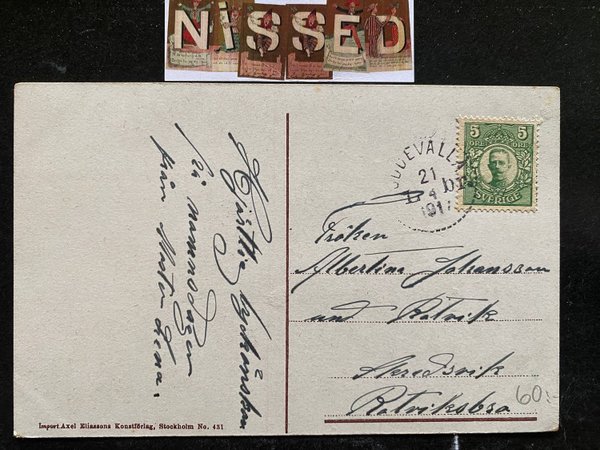 NISSED
Hjärtlig lyckönskan
på namnsdagen
från Moster Lena.
5 5
ÖRE ÖRE
SVERIGE
UDDEVALLA
21
4
191
Fröken
Albertina Johansson
Rotvik
Skredsvik
Rotviksbro
60:-
Import. Axel Eliassons Konstförlag, Stockholm No. 431